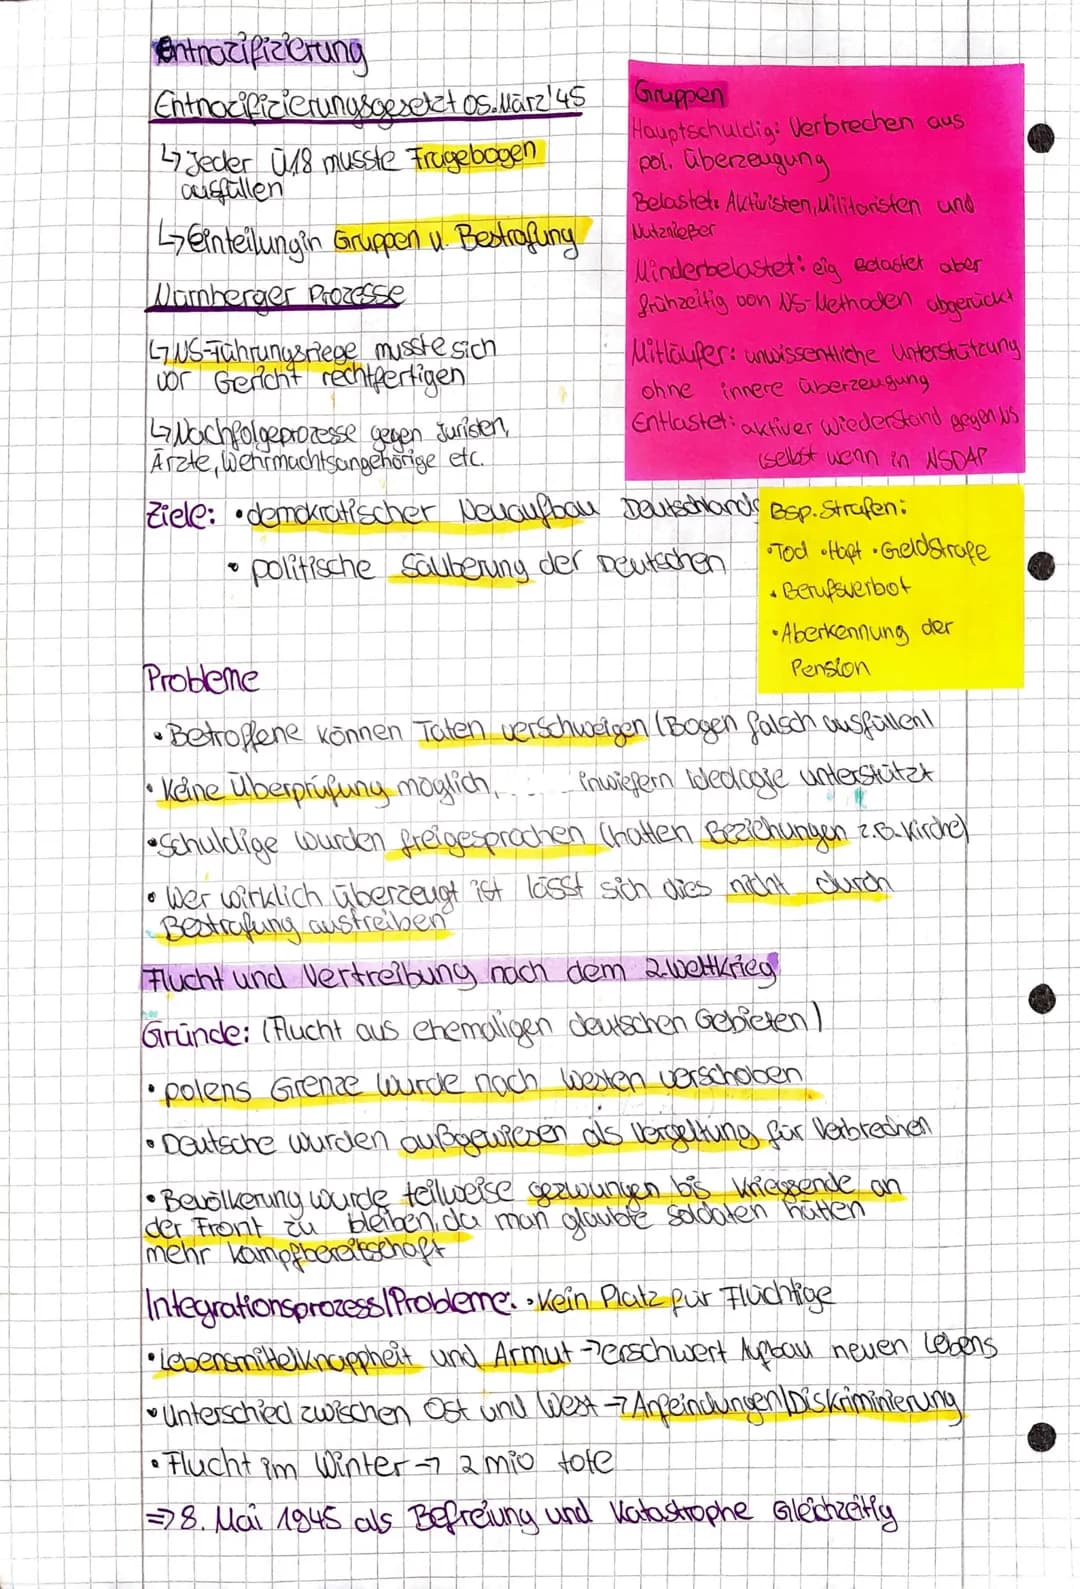 Entnazifizierung
Entnazifizierungsgesetzt 05. März '45
↳ Jeder Ü18 musste Fragebogen
ausfüllen
↳ Einteilung in Gruppen u. Bestrafung
Nürnberger Prozesse
↳ NS-Führungsriege musste sich
vor Gericht rechtfertigen
↳ Nachfolgeprozesse gegen Juristen,
Ärzte, Wehrmachtsangehörige etc.
Gruppen
Hauptschuldig: Verbrechen aus
pol. Überzeugung
Belastet: Aktivisten, Militaristen und
Nutznießer
Minderbelastet: eig belastet aber
frühzeitig von NS-Methoden abgerückt
Mitläufer: unwissentliche Unterstützung
ohne innere Überzeugung
Entlastet: aktiver Wiederstand gegen NS
(selbst wenn in NSDAP
Ziele: • demokratischer Neuaufbau Deutschlands
• politische Säuberung der Deutschen
Bsp. Strafen:
• Tod • Haft • Geldstrafe
• Berufsverbot
• Aberkennung der
Pension
Probleme
• Betroffene können Taten verschweigen (Bogen falsch ausfüllen)
• Keine Überprüfung möglich, inwiefern Ideologie unterstützt
• Schuldige wurden freigesprochen (hatten Beziehungen z.B. Kirche)
• Wer wirklich überzeugt ist lässt sich dies nicht durch
Bestrafung austreiben
Flucht und Vertreibung nach dem 2. Weltkrieg
Gründe: (Flucht aus ehemaligen deutschen Gebieten)
• polens Grenze wurde nach Westen verschoben
• Deutsche wurden außgewiesen als Vergeltung für Verbrechen
• Bevölkerung wurde teilweise gezwungen bis Kriegsende an
der Front zu bleiben, da man glaubte Soldaten hätten
mehr Kampfbereitschaft
Integrationsprozess/Probleme: • Kein Platz für Flüchtige
• Lebensmittelknappheit und Armut → erschwert Aufbau neuen Lebens
• Unterschied zwischen Ost und West → Anfeindungen/Diskriminierung
• Flucht im Winter → 2 mio tote
⇒ 8. Mai 1945 als Befreiung und Katastrophe Gleichzeitig